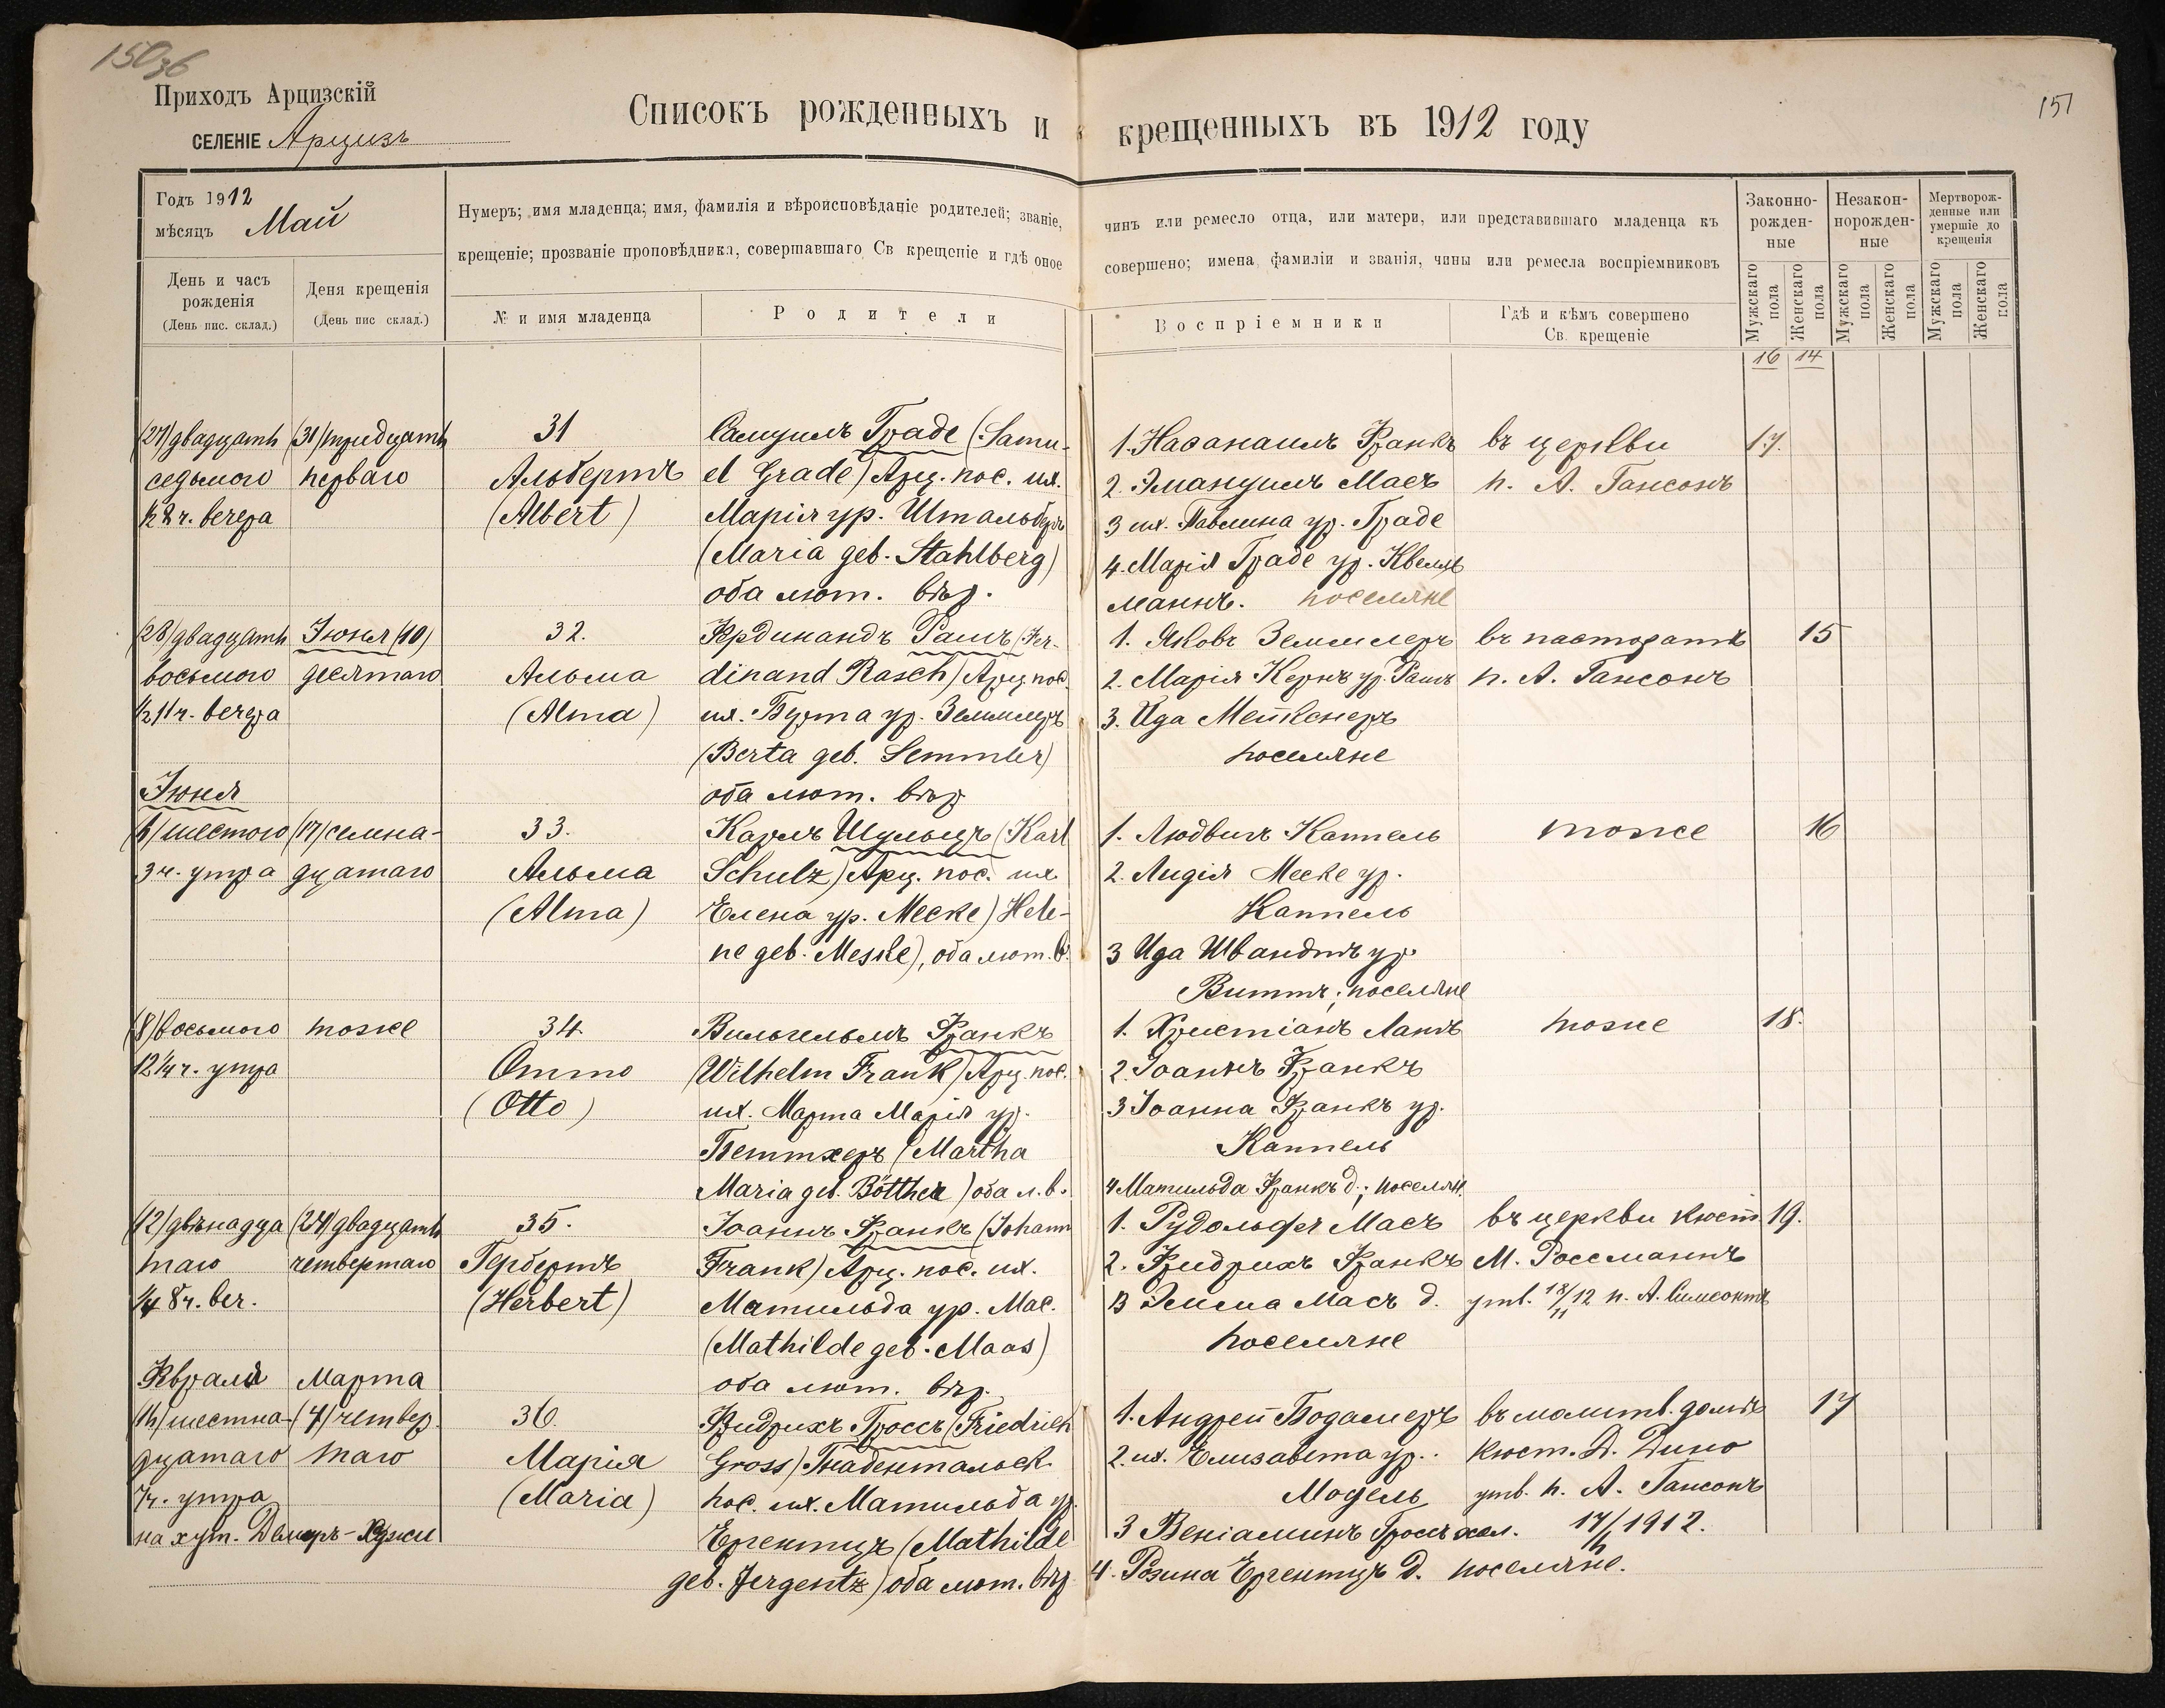 150об
151
Приходъ Арцизскій
СЕЛЕНІЕ Арцизъ
Списокъ рожденныхъ и крещенныхъ въ 1912 году
Годъ 1912
мѣсяцъ Май
Нумеръ; имя младенца; имя, фамилія и вѣроисповѣданіе родителей; званіе, чинъ или ремесло отца, или матери, или представившаго младенца къ
крещеніе; прозваніе проповѣдника, совершавшаго Св крещеніе и гдѣ оное совершено; имена фамиліи и званія, чины или ремесла воспріемниковъ
День и часъ
рожденія
(День пис. склад.)
Деня крещенія
(День пис склад.)
№ и имя младенца
Родители
Воспріемники
Гдѣ и кѣмъ совершено
Св. крещеніе
Законно-
рожден-
ные
Незакон-
норожден-
ные
Мертворож-
денные или
умершіе до
крещенія
Мужскаго пола
Женскаго пола
Мужскаго пола
Женскаго пола
Мужскаго пола
Женскаго пола
16 14
(27) двадцать
седьмого
½ 8 ч. вечера
(31) тридцать
перваго
31
Альбертъ
(Albert)
Самуилъ Граде (Samu-
el Grade) Арц. пос. их.
Марія ур. Штальбергъ
(Maria geb. Stahlberg)
оба лют. вѣр.
1. Насанаилъ Франкъ
2. Эмануилъ Масъ
3 их. Павлина ур. Граде
4. Марія Граде ур. Квельц
манъ. поселяне
въ церкви
п. А. Гансонъ
17.
(28) двадцать
восьмого
½ 11 ч. вечера
Іюня (10)
десятаго
32.
Альма
(Alma)
Фердинандъ Рашъ (Fer-
dinand Rasch) Арц. пос.
их. Берта ур. Земмлеръ
(Berta geb. Semmler)
оба лют. вѣр
1. Яковъ Земмлеръ
2. Марія Кернъ ур. Рашъ
3. Ида Мейкснеръ
поселяне
въ пасторатѣ
п. А. Гансонъ
15
Іюня
(6) шестого
3 ч. утра
(17) семна-
дцатаго
33.
Альма
(Alma)
Карлъ Шульцъ (Karl
Schulz) Арц. пос. их.
Елена ур. Меске) Hele-
ne geb. Meske), оба лют. в.
1. Людвигъ Каппель
2. Лидія Меске ур.
Каппель
3 Ида Швандтъ ур.
Виттъ; поселяне
тоже
16
(8) восьмого
12 ¼ ч. утра
тоже
34.
Отто
(Otto)
Вильгельмъ Франкъ
(Wilhelm Frank) Арц. пос.
их. Марта Марія ур.
Беттхеръ (Martha
Maria geb. Bötther) оба л. в.
1. Христіанъ Лангъ
2. Іоаннъ Франкъ
3 Іоанна Франкъ ур.
Каппель
4 Матильда Франкъ д.; поселян.
тоже
18.
(12) двѣнадца
таго
¼ 8 ч. веч.
(24) двадцать
четвертаго
35.
Гербертъ
(Herbert)
Іоаннъ Франкъ (Johann
Frank) Арц. пос. их.
Матильда ур. Мас.
(Mathilde geb. Maas)
оба лют. вѣр.
1. Рудольфъ Масъ
2. Фридрихъ Франкъ
3 Эмма Масъ д.
поселяне
въ церкви кюст.
М. Россманнъ
утв. 18/11 12 п. А.
19.
Февраля
(16) шестна-
дцатаго
7 ч. утра
на хут. Демиръ-Хаджи
Марта
(4) четвер.
таго
36.
Марія
(Maria)
Фридрихъ Гроссъ (Friedrich
Gross) Гнадентальск.
пос. их. Матильда ур.
Ергентцъ (Mathilde
geb. Jergentz) оба лют. вѣр
1. Андрей Бодамеръ
2. их. Елизавета ур.
Модель
3 Веніаминъ Гроссъ хол.
4. Розина Ергентцъ д. поселяне.
въ молитв. домѣ
кюст. Д. Дино
утв. п. А. Гансонъ
17/6 1912.
17